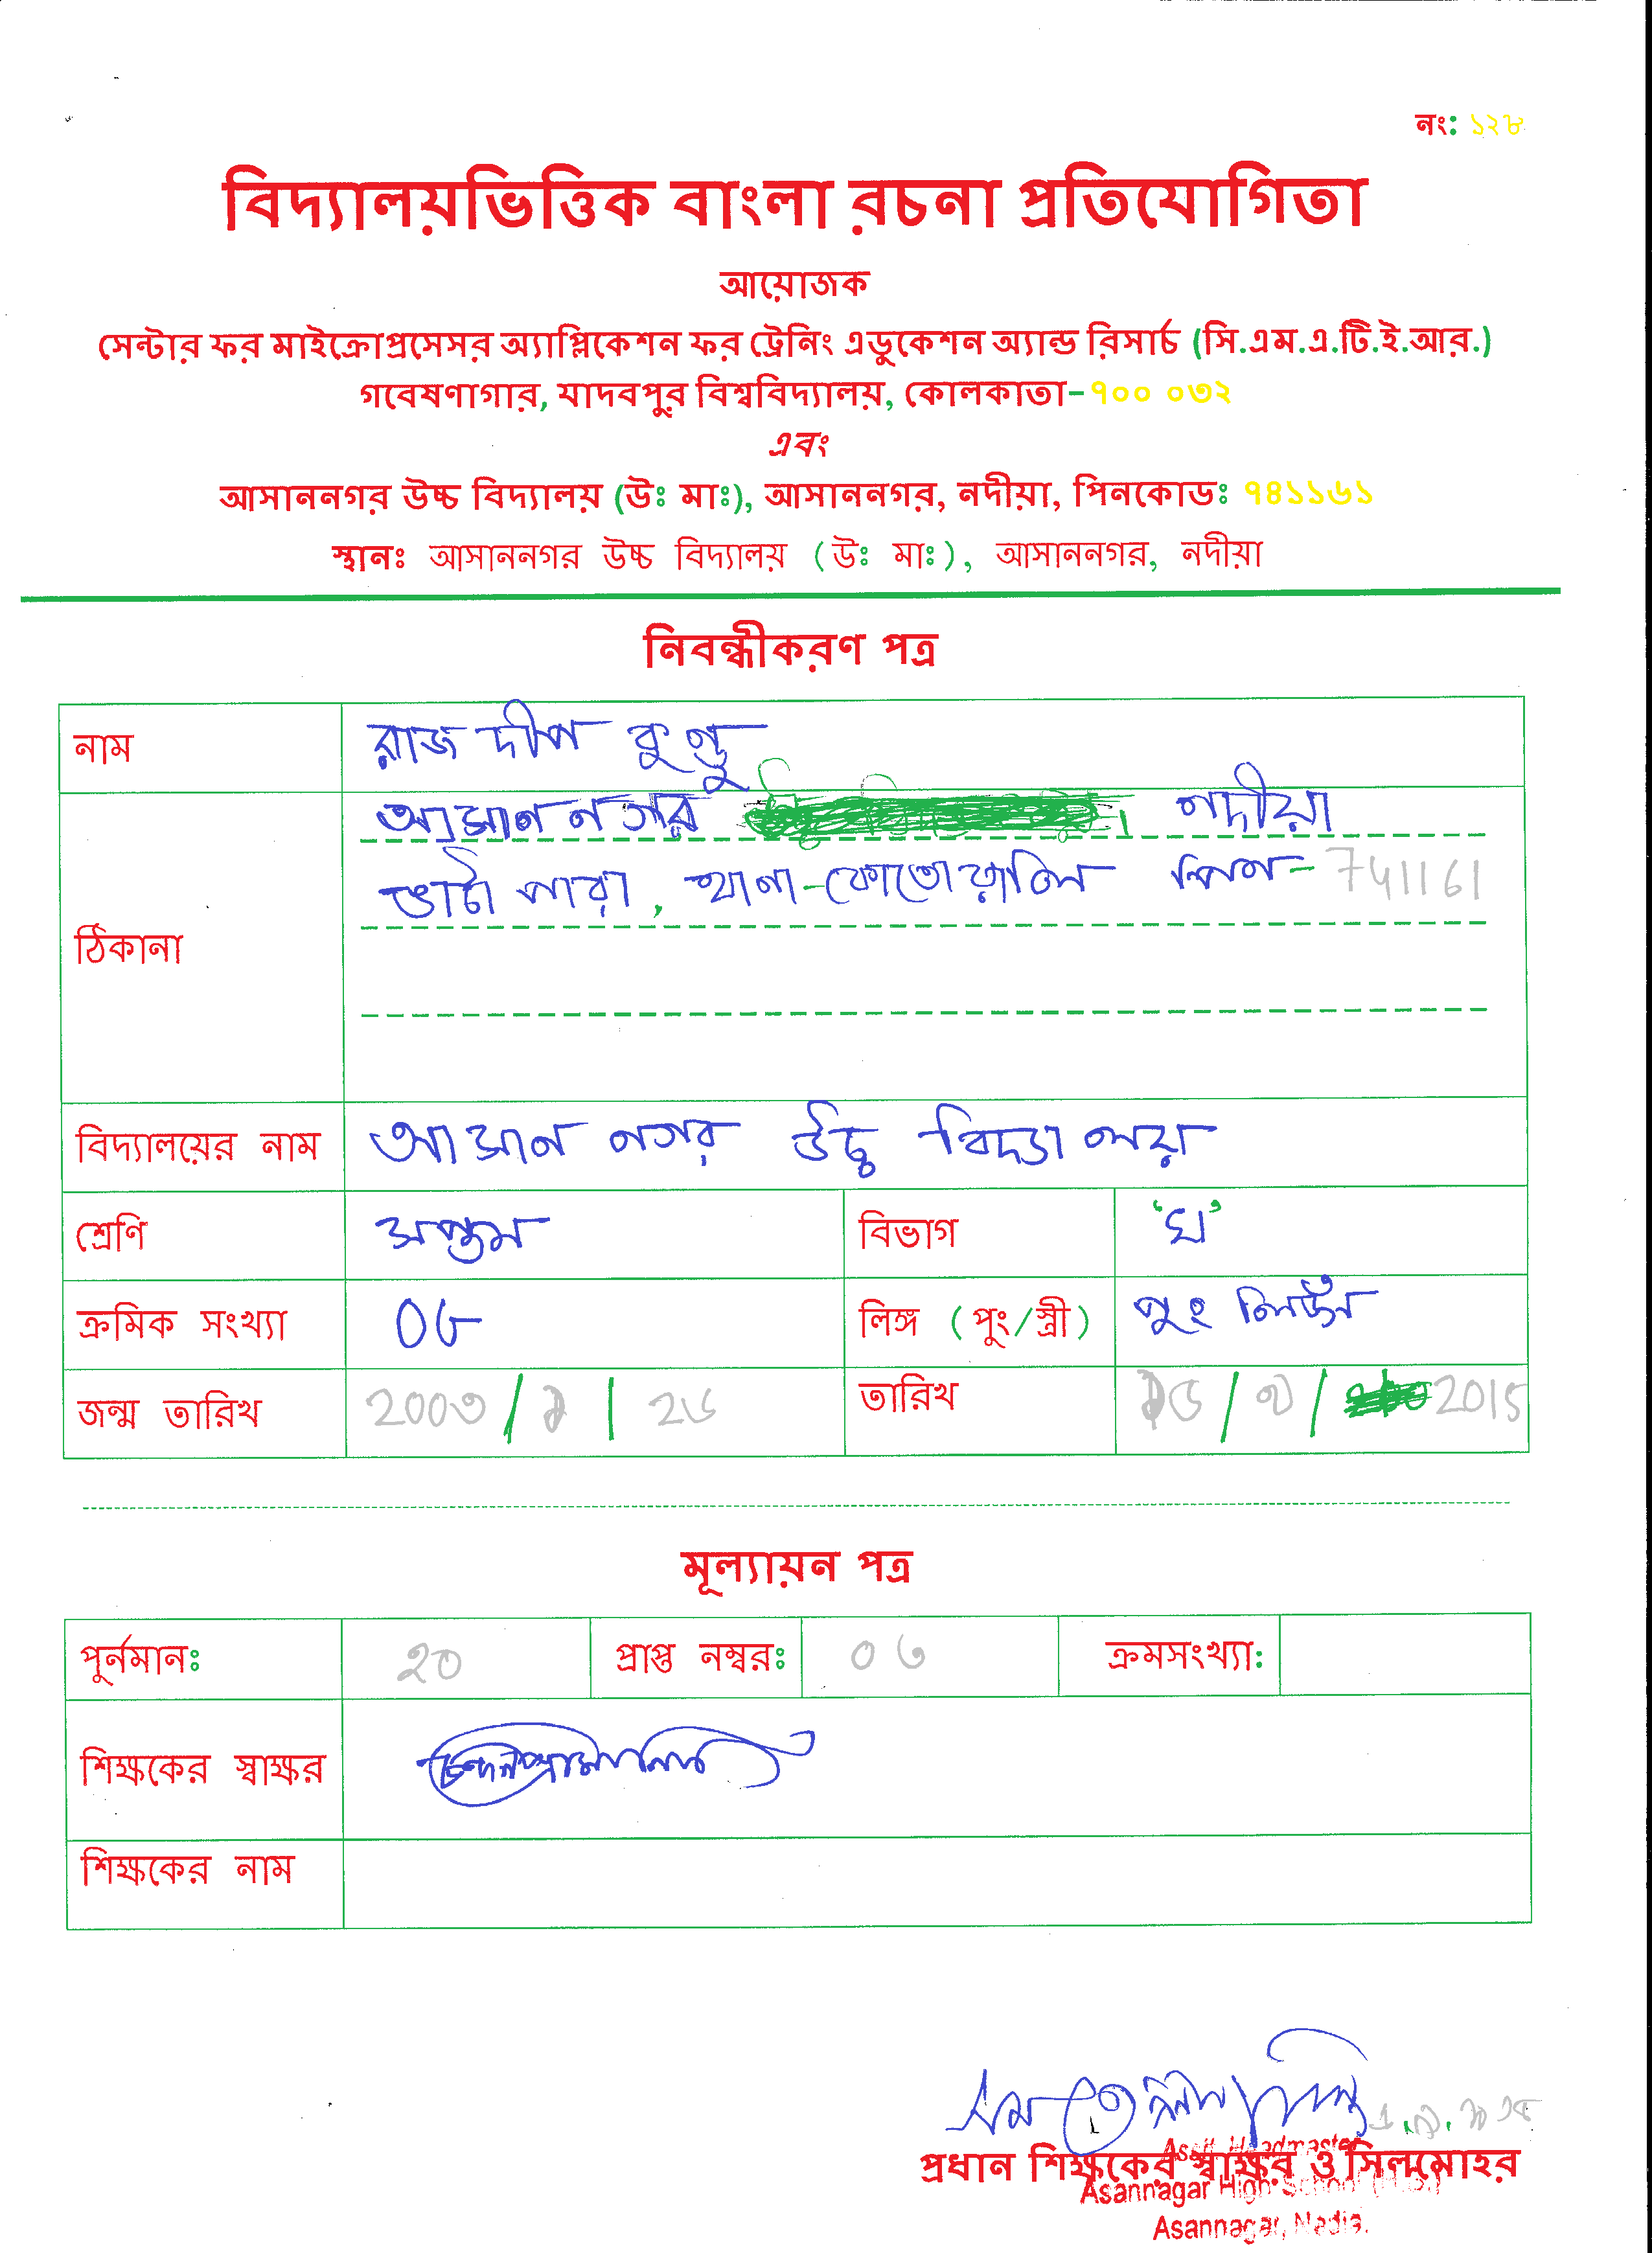 নং: ১২৮
বিদ্যালয়ভিত্তিক বাংলা রচনা প্রতিযোগিতা
আয়োজক
সেন্টার ফর মাইক্রোপ্রসেসর অ্যাপ্লিকেশন ফর ট্রেনিং এডুকেশন অ্যান্ড রিসার্চ (সি.এম.এ.টি.ই.আর.)
গবেষণাগার, যাদবপুর বিশ্ববিদ্যালয়, কোলকাতা-৭০০ ০৩২
এবং
আসাননগর উচ্চ বিদ্যালয় (উঃ মাঃ), আসাননগর, নদীয়া, পিনকোডঃ ৭৪১১৬১
স্থানঃ আসাননগর উচ্চ বিদ্যালয় (উঃ মাঃ), আসাননগর, নদীয়া
নিবন্ধীকরণ পত্র
নাম রাজ দীপ কুণ্ডু
ঠিকানা আসান নগর নদীয়া
ভাটা পারা, থানা-কোতোয়ালি পিন- 741161
বিদ্যালয়ের নাম আসান নগর উচ্চ বিদ্যালয়
শ্রেণি সপ্তম বিভাগ 'ঘ'
ক্রমিক সংখ্যা ০৬ লিঙ্গ (পুং/স্ত্রী) পুং
জন্ম তারিখ তারিখ 2015
মূল্যায়ন পত্র
পূর্নমানঃ ২০ প্রাপ্ত নম্বরঃ ০৬ ক্রমসংখ্যা:
শিক্ষকের স্বাক্ষর
শিক্ষকের নাম
প্রধান শিক্ষকের স্বাক্ষর ও সিলমোহর
Asstt. Headmaster
Asannagar High School (H.S.)
Asannagar, Nadia.